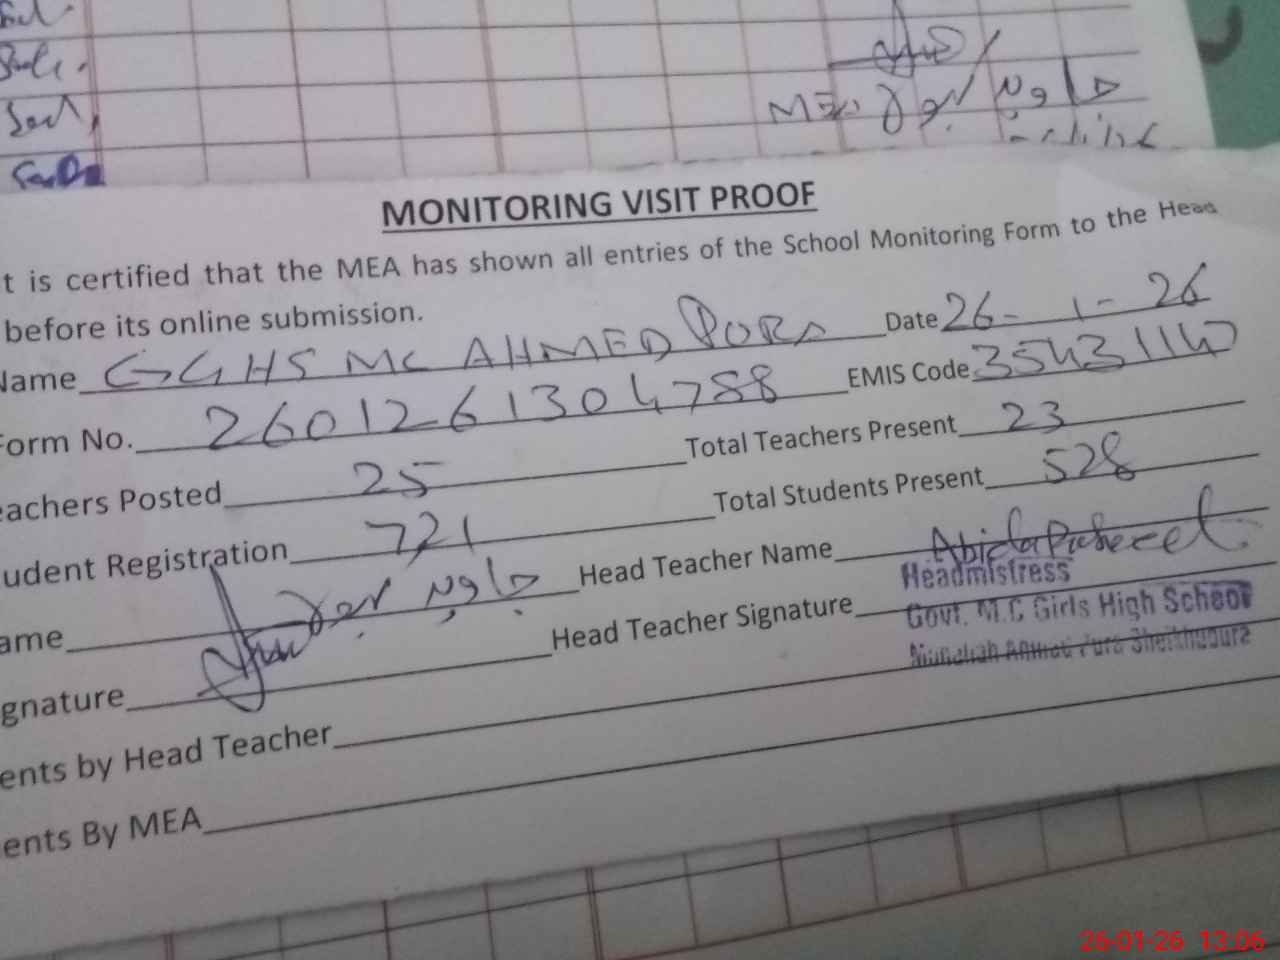 MEA
MONITORING VISIT PROOF
t is certified that the MEA has shown all entries of the School Monitoring Form to the Head
before its online submission.
Name GGHS MC AHMED PORA Date 26-1-26
Form No. 2601261304788 EMIS Code 35431140
eachers Posted 25 Total Teachers Present 23
udent Registration 721 Total Students Present 528
ame Head Teacher Name Abida
gnature Head Teacher Signature
Headmistress
Govt. M.C Girls High School
Pura Sheikhupura
ents by Head Teacher
ents By MEA
26-01-26 13:06